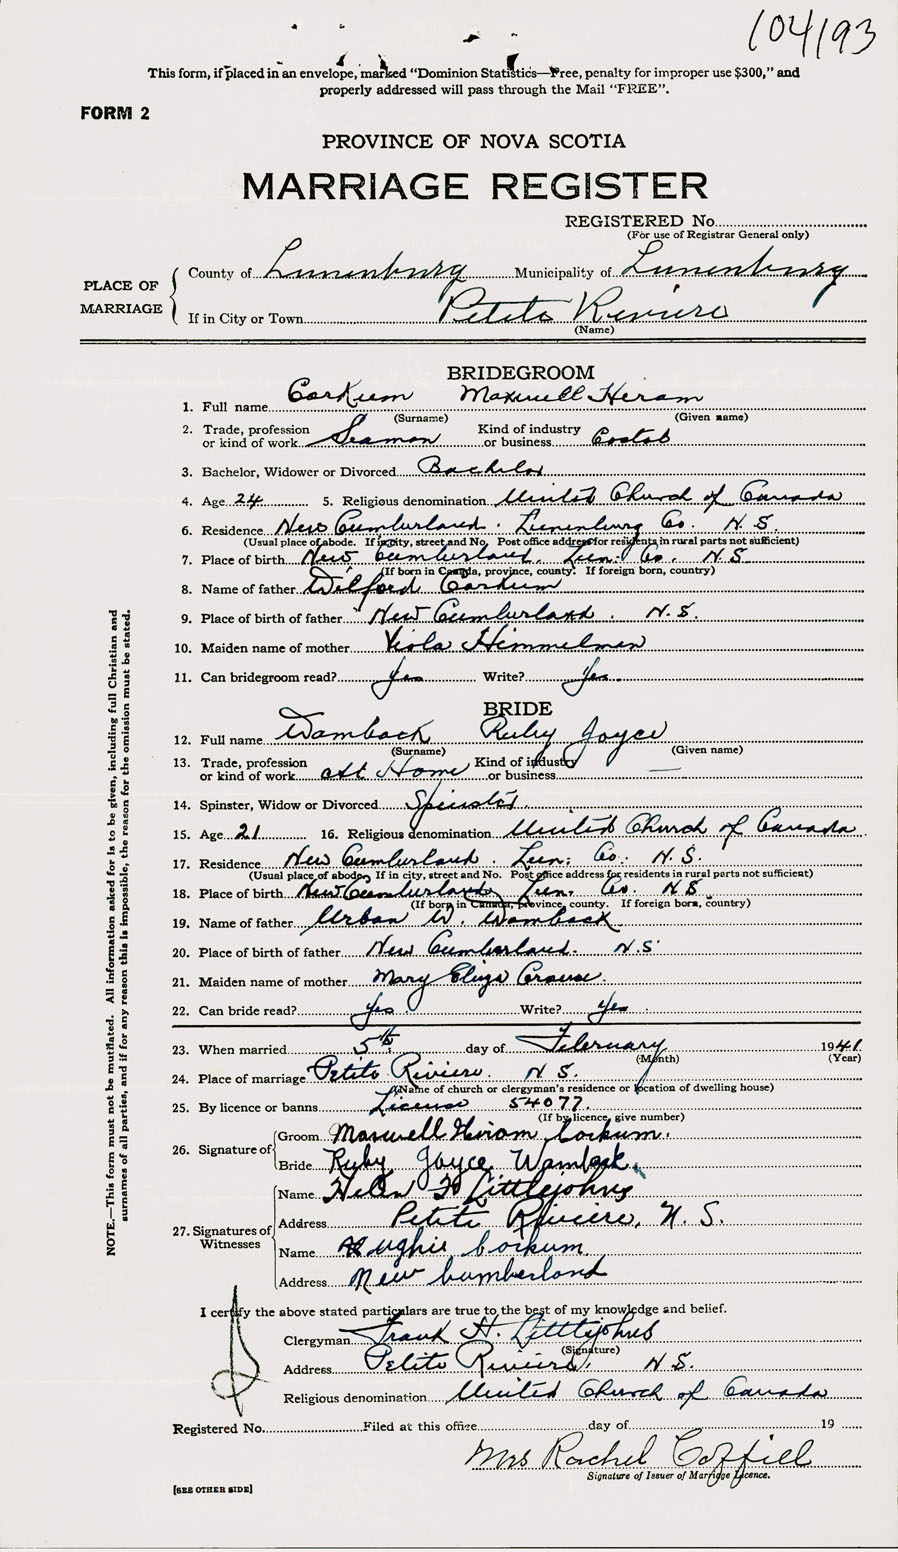 104193
This form, if placed in an envelope, marked "Dominion Statistics—Free, penalty for improper use $300," and
properly addressed will pass through the Mail "FREE".
FORM 2
PROVINCE OF NOVA SCOTIA
MARRIAGE REGISTER
REGISTERED No.
(For use of Registrar General only)
PLACE OF MARRIAGE
County of Lunenburg Municipality of Lunenburg
If in City or Town Petite Riviere
(Name)
BRIDEGROOM
1. Full name Corkum Maxwell Hiram
(Surname) (Given name)
2. Trade, profession or kind of work Seaman Kind of industry or business Coastal
3. Bachelor, Widower or Divorced Bachelor
4. Age 24 5. Religious denomination United Church of Canada
6. Residence New Cumberland. Lunenburg Co. N.S.
(Usual place of abode. If in city, street and No. Post office address for residents in rural parts not sufficient)
7. Place of birth New Cumberland, Lun. Co. N.S.
(If born in Canada, province, county. If foreign born, country)
8. Name of father Wilford Corkum
9. Place of birth of father New Cumberland. N.S.
10. Maiden name of mother Viola Himmelman
11. Can bridegroom read? Yes Write? Yes.
BRIDE
12. Full name Wamback Ruby Joyce
(Surname) (Given name)
13. Trade, profession or kind of work At Home Kind of industry or business —
14. Spinster, Widow or Divorced Spinster
15. Age 21 16. Religious denomination United Church of Canada
17. Residence New Cumberland. Lun. Co. N.S.
(Usual place of abode. If in city, street and No. Post office address for residents in rural parts not sufficient)
18. Place of birth New Cumberland, Lun. Co. N.S
(If born in Canada, province, county. If foreign born, country)
19. Name of father Urban W. Wamback
20. Place of birth of father New Cumberland. N.S.
21. Maiden name of mother Mary Eliza Crouse.
22. Can bride read? Yes Write? Yes
23. When married 5th day of February 1941
(Month) (Year)
24. Place of marriage Petite Riviere. N.S.
(Name of church or clergyman's residence or location of dwelling house)
25. By licence or banns License 54077.
(If by licence, give number)
26. Signature of
Groom Maxwell Hiram Corkum.
Bride Ruby Joyce Wamback.
27. Signatures of Witnesses
Name Helen Littlejohns
Address Petite Riviere, N.S.
Name Hughie Corkum
Address New Cumberland
I certify the above stated particulars are true to the best of my knowledge and belief.
Clergyman Frank H. Littlejohns
(Signature)
Address Petite Riviere, N.S.
Religious denomination United Church of Canada
Registered No. Filed at this office day of 19
Mrs Rachel Coffill
Signature of Issuer of Marriage Licence.
[SEE OTHER SIDE]
NOTE.—This form must not be mutilated. All information asked for is to be given, including full Christian and
surnames of all parties, and if for any reason this is impossible, the reason for the omission must be stated.